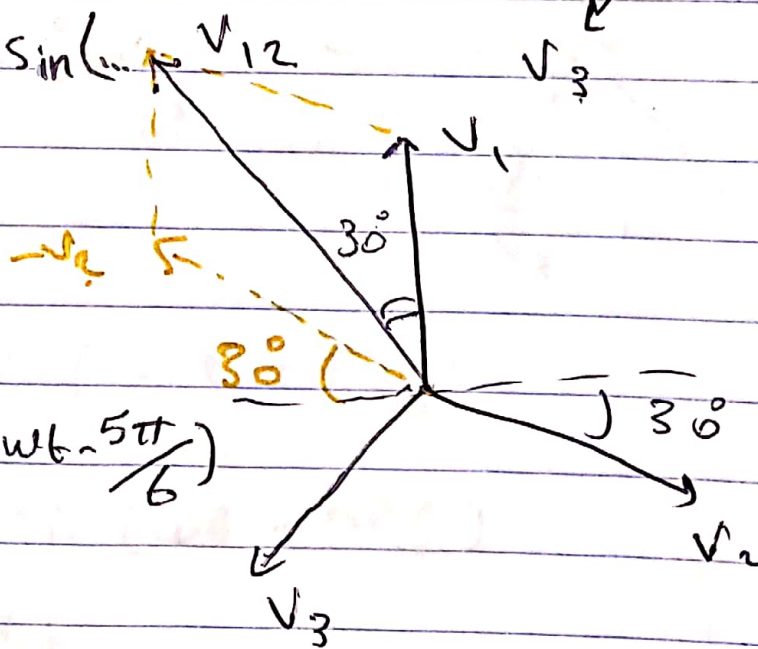 V3
sin(...
V12
V1
30°
-V2
30°
30°
wt-5π/6)
V2
V3